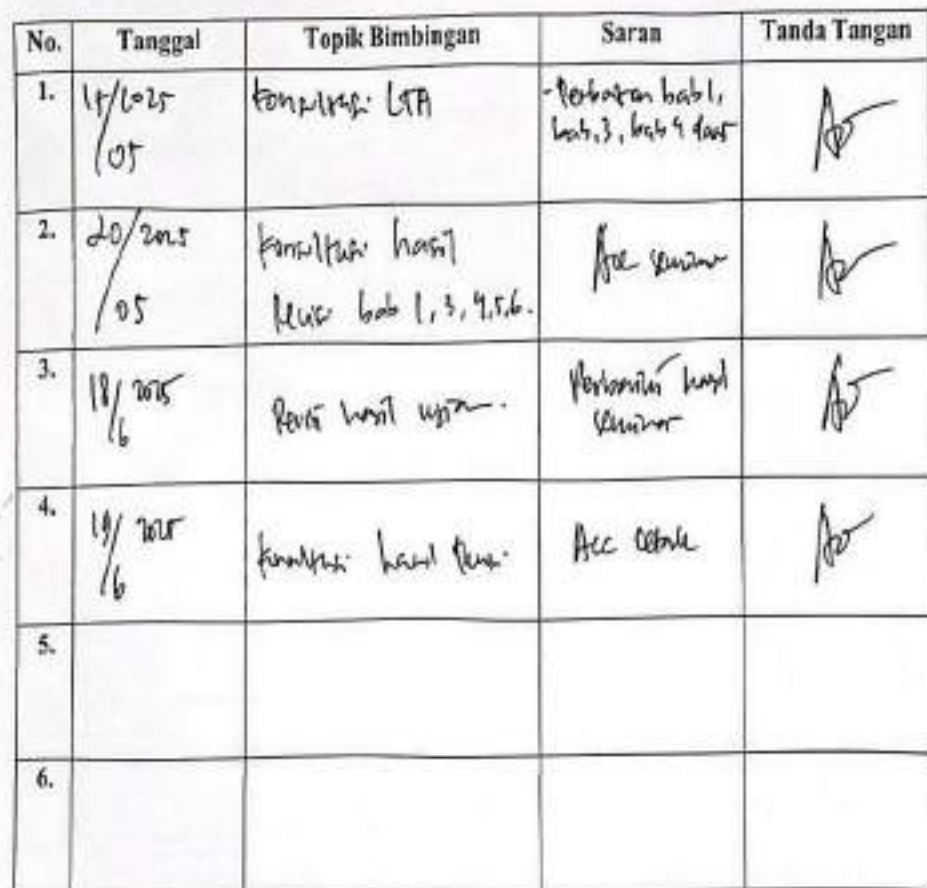 No. Tanggal Topik Bimbingan Saran Tanda Tangan
1. 15/2025 Konsultasi LTA - Perbaikan bab 1,
05 bab, 3, bab 4 dan 5
2. 20/2025 Konsultasi hasil Acc seminar
05 Revisi bab 1, 3, 4, 5, 6.
3. 18/2025 Revisi hasil ujian. Perbaiki hasil
6 seminar
4. 19/2025 Konsultasi hasil Revisi Acc Cetak
6
5.
6.